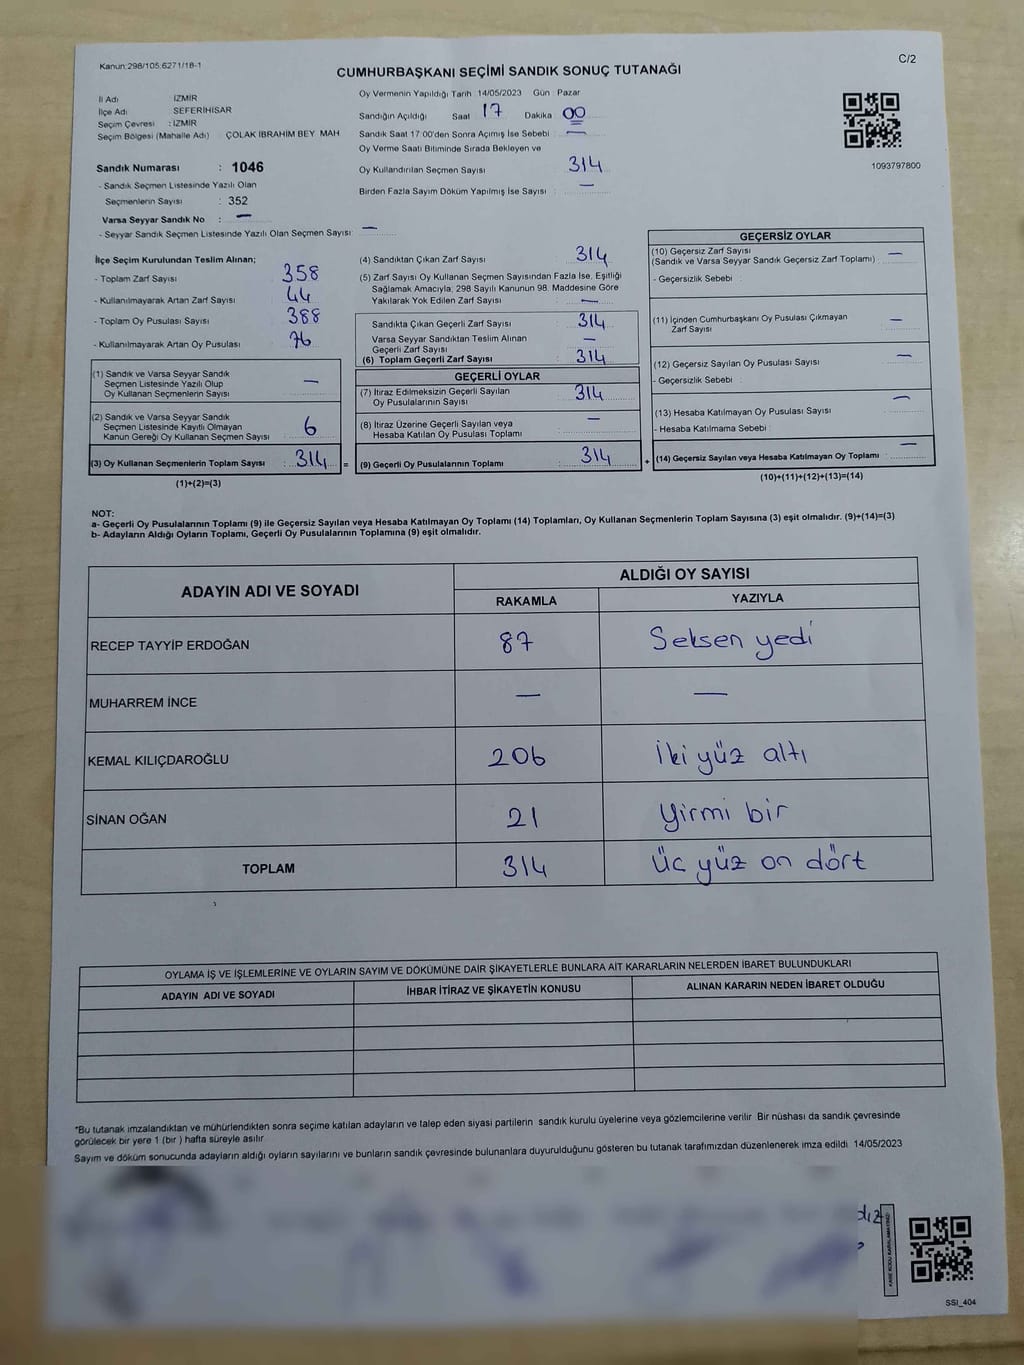 Kanun:298/105;6271/18-1
C/2
CUMHURBAŞKANI SEÇİMİ SANDIK SONUÇ TUTANAĞI
İl Adı İZMİR
İlçe Adı SEFERİHİSAR
Seçim Çevresi : İZMİR
Seçim Bölgesi (Mahalle Adı) ÇOLAK İBRAHİM BEY. MAH
Sandık Numarası : 1046
- Sandık Seçmen Listesinde Yazılı Olan
Seçmenlerin Sayısı : 352
Varsa Seyyar Sandık No : —
- Seyyar Sandık Seçmen Listesinde Yazılı Olan Seçmen Sayısı: —
Oy Vermenin Yapıldığı Tarih 14/05/2023 Gün : Pazar
Sandığın Açıldığı Saat 17 Dakika : 00
Sandık Saat 17:00'den Sonra Açımış İse Sebebi —
Oy Verme Saati Bitiminde Sırada Bekleyen ve
Oy Kullandırılan Seçmen Sayısı 314
Birden Fazla Sayım Döküm Yapılmış İse Sayısı : —
1093797800
İlçe Seçim Kurulundan Teslim Alınan;
- Toplam Zarf Sayısı 358
- Kullanılmayarak Artan Zarf Sayısı : 44
- Toplam Oy Pusulası Sayısı : 388
- Kullanılmayarak Artan Oy Pusulası : 76
(1) Sandık ve Varsa Seyyar Sandık
Seçmen Listesinde Yazılı Olup
Oy Kullanan Seçmenlerin Sayısı : —
(2) Sandık ve Varsa Seyyar Sandık
Seçmen Listesinde Kayıtlı Olmayan
Kanun Gereği Oy Kullanan Seçmen Sayısı : 6
(3) Oy Kullanan Seçmenlerin Toplam Sayısı : 314 =
(1)+(2)=(3)
(4) Sandıktan Çıkan Zarf Sayısı : 314
(5) Zarf Sayısı Oy Kullanan Seçmen Sayısından Fazla İse, Eşitliği
Sağlamak Amacıyla; 298 Sayılı Kanunun 98. Maddesine Göre
Yakılarak Yok Edilen Zarf Sayısı : —
Sandıkta Çıkan Geçerli Zarf Sayısı : 314
Varsa Seyyar Sandıktan Teslim Alınan
Geçerli Zarf Sayısı : —
(6) Toplam Geçerli Zarf Sayısı : 314
GEÇERLİ OYLAR
(7) İtiraz Edilmeksizin Geçerli Sayılan
Oy Pusulalarının Sayısı : 314
(8) İtiraz Üzerine Geçerli Sayılan veya
Hesaba Katılan Oy Pusulası Toplamı : —
(9) Geçerli Oy Pusulalarının Toplamı : 314 +
GEÇERSİZ OYLAR
(10) Geçersiz Zarf Sayısı
(Sandık ve Varsa Seyyar Sandık Geçersiz Zarf Toplamı) : —
- Geçersizlik Sebebi :
(11) İçinden Cumhurbaşkanı Oy Pusulası Çıkmayan
Zarf Sayısı : —
(12) Geçersiz Sayılan Oy Pusulası Sayısı : —
- Geçersizlik Sebebi :
(13) Hesaba Katılmayan Oy Pusulası Sayısı : —
- Hesaba Katılmama Sebebi :
(14) Geçersiz Sayılan veya Hesaba Katılmayan Oy Toplamı : —
(10)+(11)+(12)+(13)=(14)
NOT:
a- Geçerli Oy Pusulalarının Toplamı (9) ile Geçersiz Sayılan veya Hesaba Katılmayan Oy Toplamı (14) Toplamları, Oy Kullanan Seçmenlerin Toplam Sayısına (3) eşit olmalıdır. (9)+(14)=(3)
b- Adayların Aldığı Oyların Toplamı, Geçerli Oy Pusulalarının Toplamına (9) eşit olmalıdır.
ADAYIN ADI VE SOYADI ALDIĞI OY SAYISI
RAKAMLA YAZIYLA
RECEP TAYYİP ERDOĞAN 87 Seksen yedi
MUHARREM İNCE — —
KEMAL KILIÇDAROĞLU 206 İki yüz altı
SİNAN OĞAN 21 Yirmi bir
TOPLAM 314 Üç yüz on dört
OYLAMA İŞ VE İŞLEMLERİNE VE OYLARIN SAYIM VE DÖKÜMÜNE DAİR ŞİKAYETLERLE BUNLARA AİT KARARLARIN NELERDEN İBARET BULUNDUKLARI
ADAYIN ADI VE SOYADI İHBAR İTİRAZ VE ŞİKAYETİN KONUSU ALINAN KARARIN NEDEN İBARET OLDUĞU
*Bu tutanak imzalandıktan ve mühürlendikten sonra seçime katılan adayların ve talep eden siyasi partilerin sandık kurulu üyelerine veya gözlemcilerine verilir. Bir nüshası da sandık çevresinde
görülecek bir yere 1 (bir ) hafta süreyle asılır.
Sayım ve döküm sonucunda adayların aldığı oyların sayılarını ve bunların sandık çevresinde bulunanlara duyurulduğunu gösteren bu tutanak tarafımızdan düzenlenerek imza edildi. 14/05/2023
SSI_404